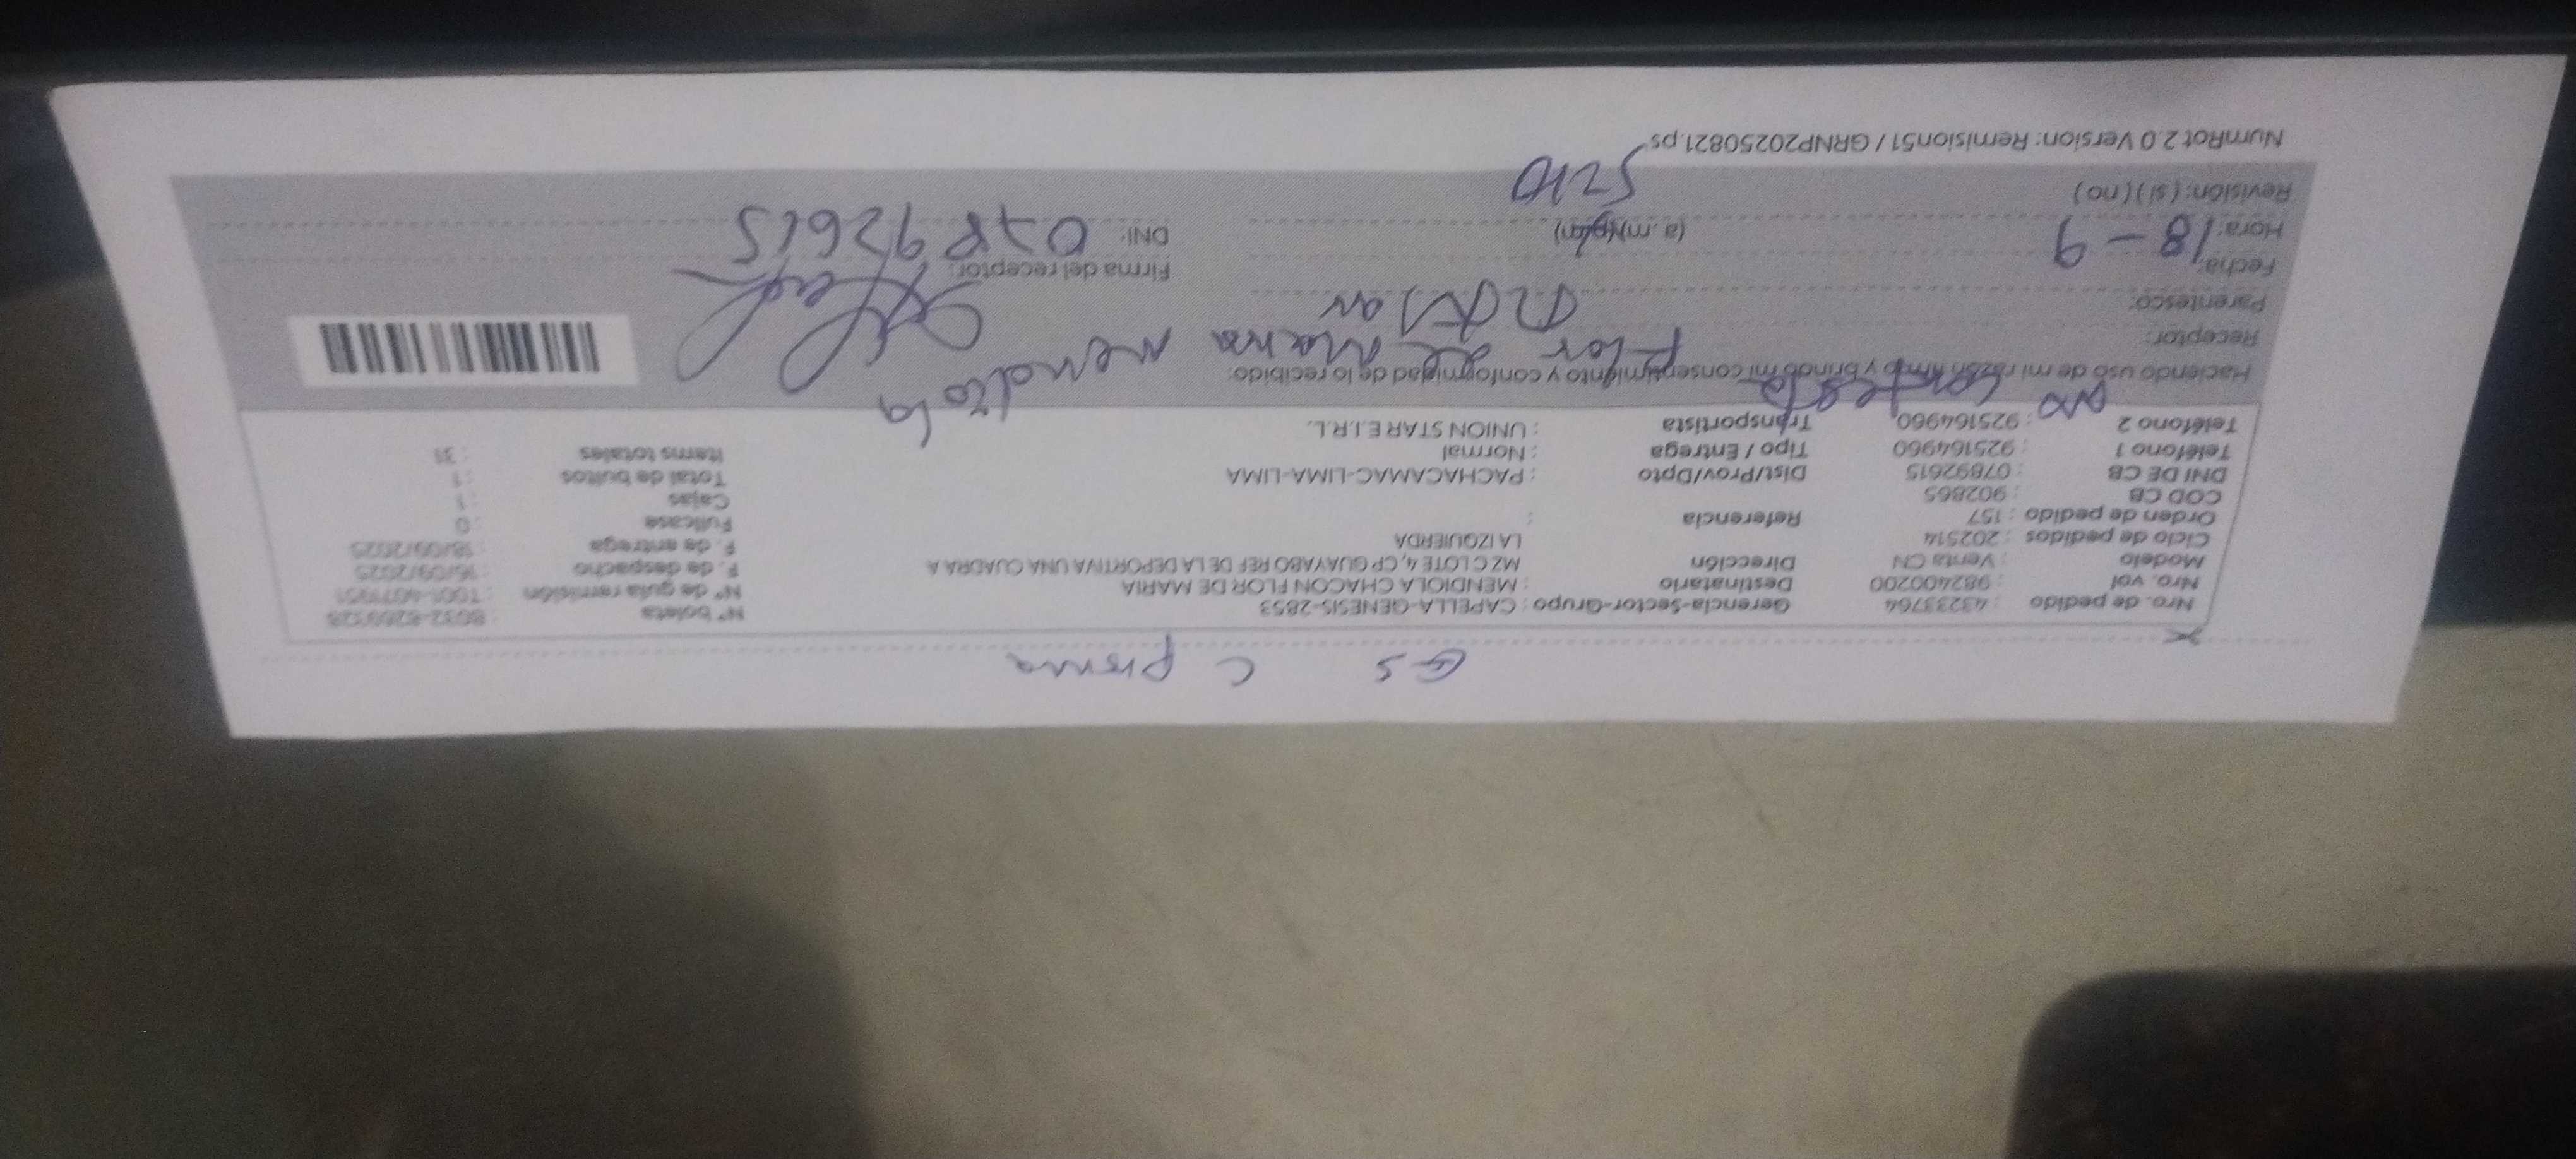 GS C Pierna
Nro. de pedido : 43233764 Gerencia-Sector-Grupo : CAPELLA-GENESIS-2853 N° boleta
Nro. vol : 982400200 Destinatario : MENDIOLA CHACON FLOR DE MARIA N° de guía remisión
Modelo : Venta CN Dirección MZ C LOTE 4, CP GUAYABO REF DE LA DEPORTIVA UNA CUADRA A F. de despacho : 16/09/2025
Ciclo de pedidos : 202514 LA IZQUIERDA F. de entrega : 18/09/2025
Orden de pedido : 157 Referencia : Fullcase : 0
COD CB : 902865 Cajas : 1
DNI DE CB : 07892615 Dist/Prov/Dpto : PACHACAMAC-LIMA-LIMA Total de bultos : 1
Teléfono 1 : 925164960 Tipo / Entrega : Normal Items totales : 31
Teléfono 2 : 925164960 Transportista : UNION STAR E.I.R.L.
no contesta
Haciendo uso de mi razón firmo y brindo mi consentimiento y conformidad de lo recibido:
Receptor: Flor de Maria Mendiola
Parentesco:
Fecha: 18-9 Firma del receptor:
Hora: (a.m) (p.m) DNI: 07892615
Revisión: (si) (no) 5210
NumRot 2.0 Version: Remision51 / GRNP20250821.ps